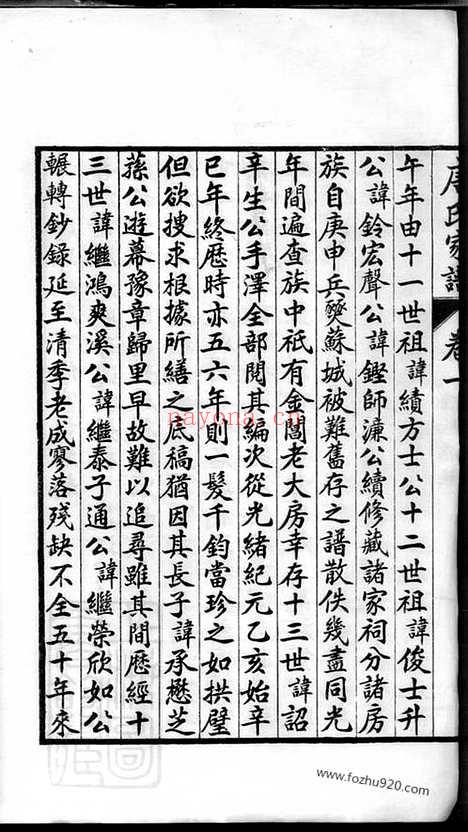 唐氏家譜 卷一
午年由十一世祖諱績方士公十二世祖諱俊士升
公諱鈴宏聲公諱鏗師濂公續修藏諸家祠分諸房
族自庚申兵燹蘇城被難舊存之譜散佚幾盡同光
年間遍查族中祇有金閶老大房幸存十三世諱詔
辛生公手澤全部閱其編次從光緒紀元乙亥始辛
巳年終歷時亦五六年則一髮千鈞當珍之如拱璧
但欲搜求根據所繕之底稿猶因其長子諱承懋芝
蓀公遊幕豫章歸里早故難以追尋雖其間歷經十
三世諱繼鴻爽溪公諱繼泰子通公諱繼榮欣如公
輾轉鈔錄延至清季老成寥落殘缺不全五十年來
nayona.cn
www.fozhu920.com